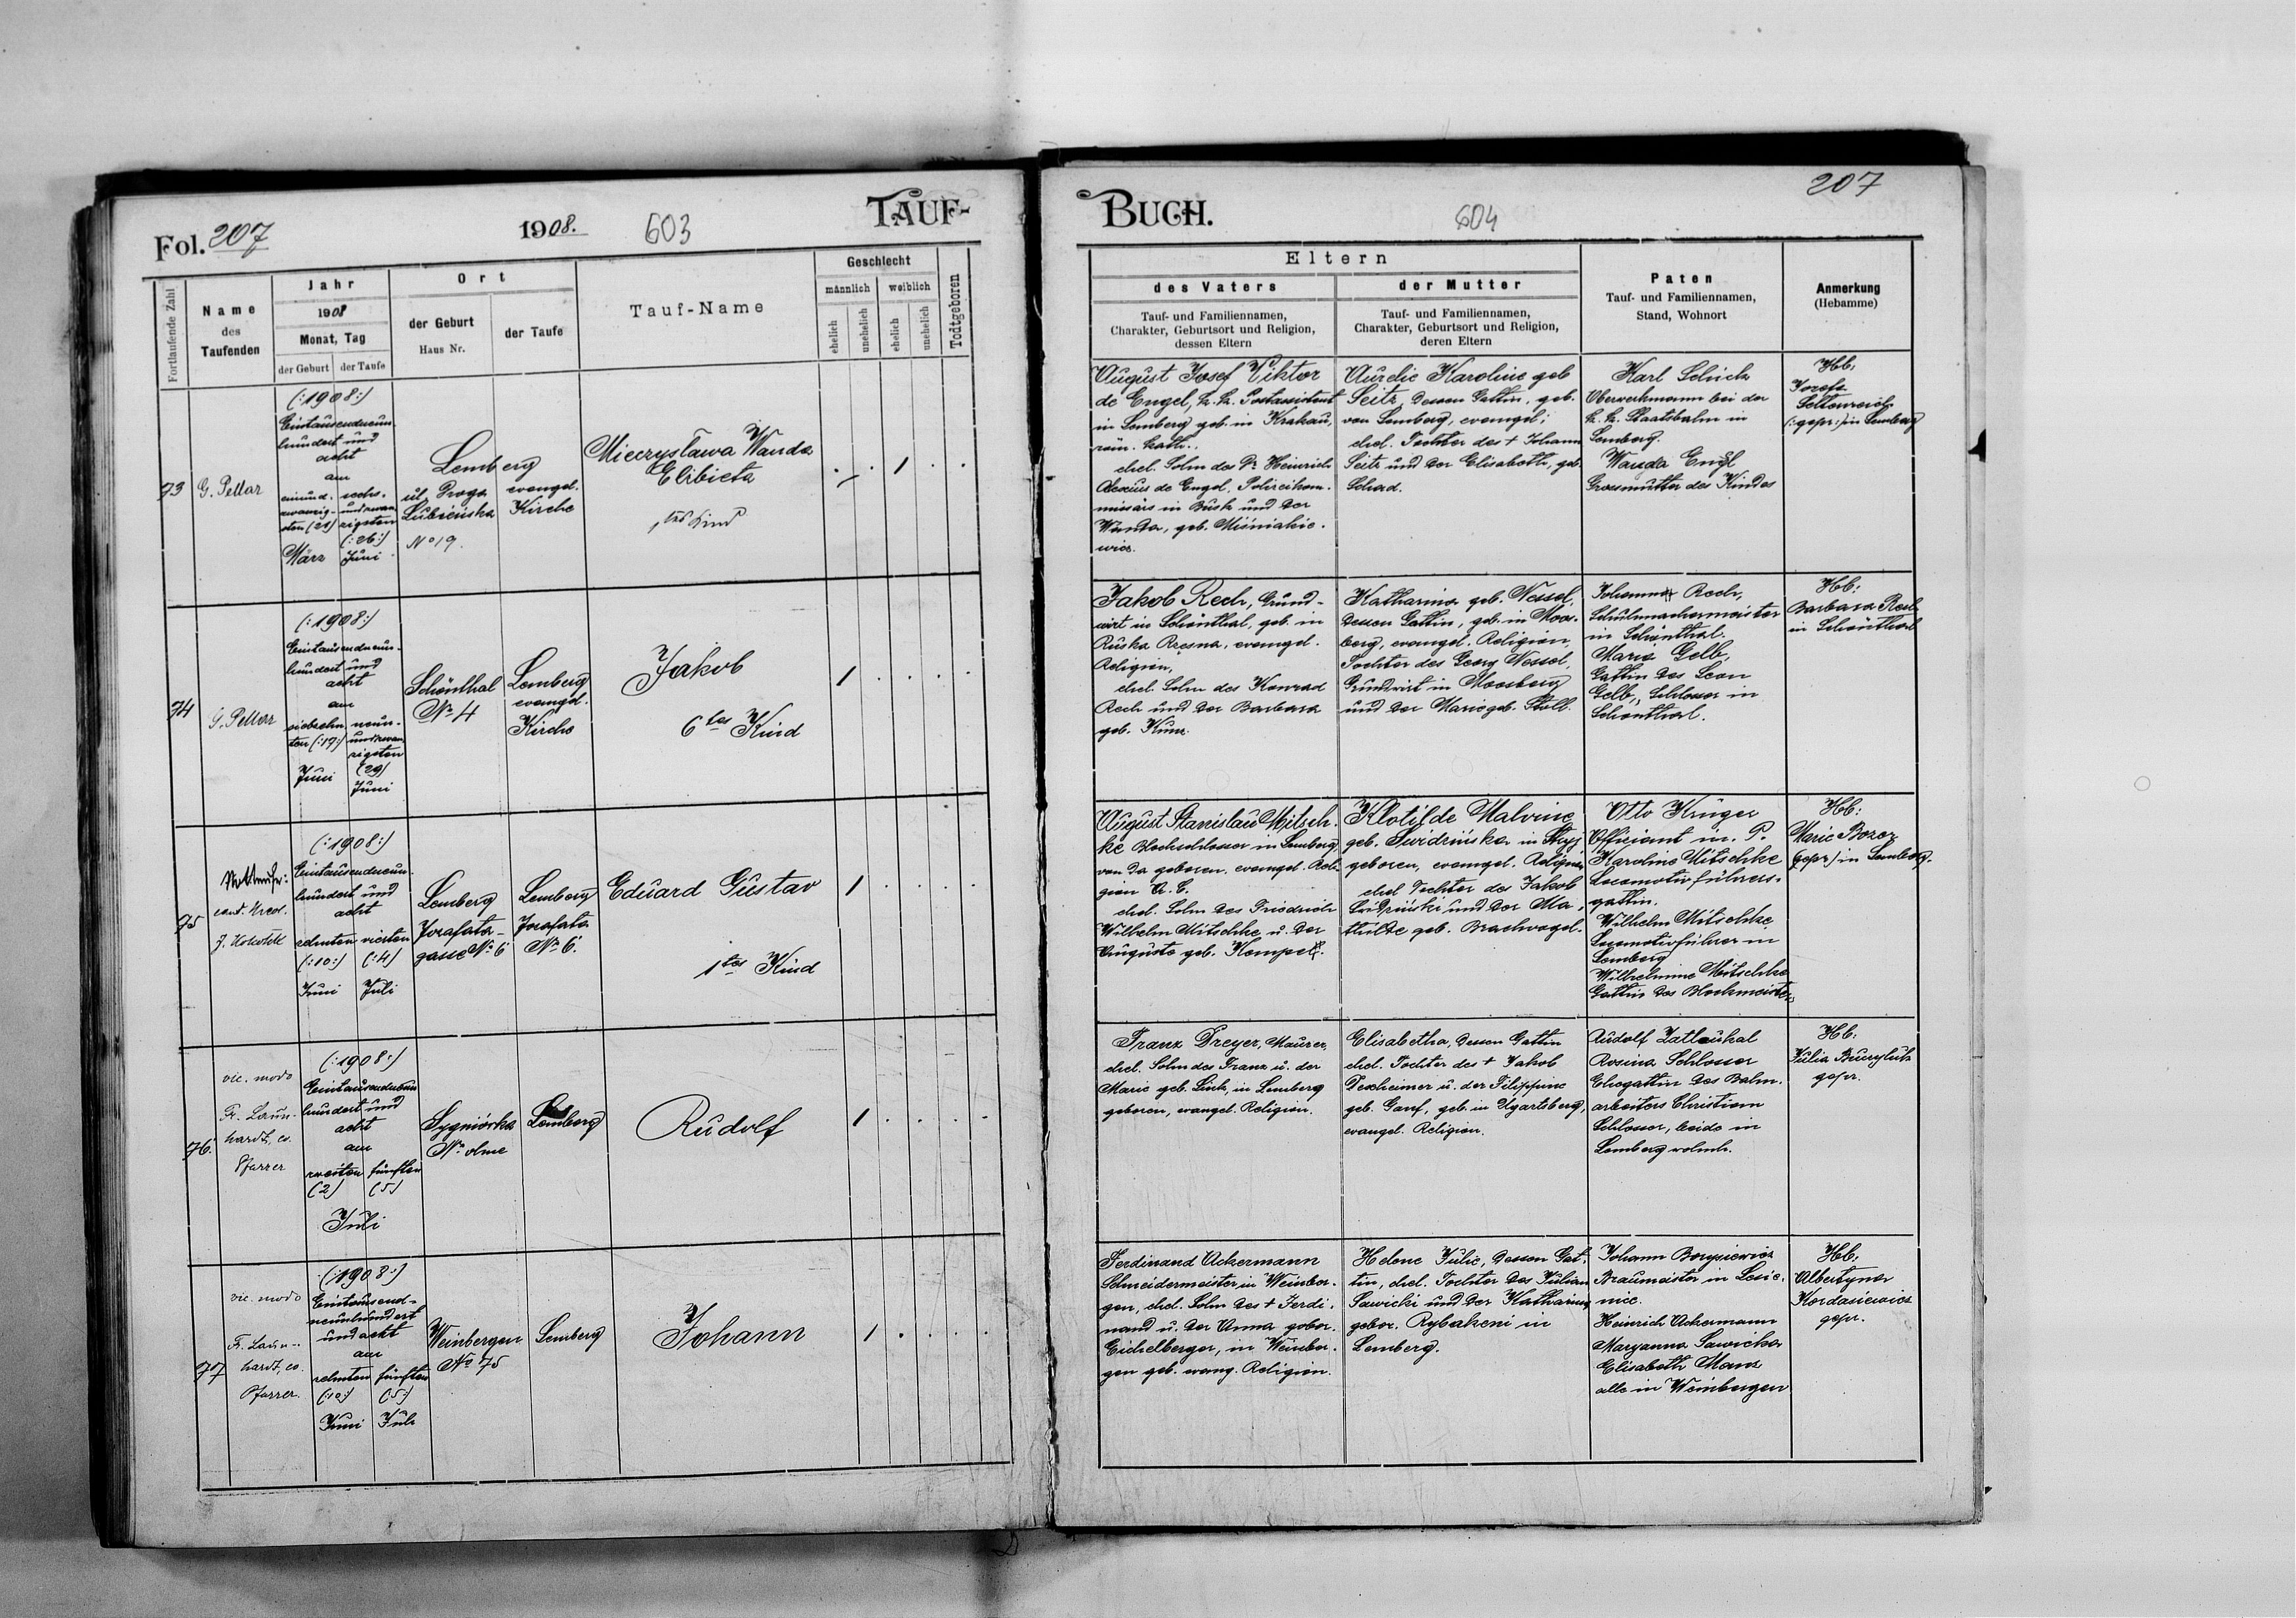 Fol. 207
1908.
603
TAUF-
Fortlaufende Zahl
Name
des
Taufenden
Jahr
1908
Monat, Tag
der Geburt
der Taufe
Ort
der Geburt
Haus Nr.
der Taufe
Tauf-Name
Geschlecht
männlich
weiblich
ehelich
unehelich
ehelich
unehelich
Todtgeboren
73
G. Pellar
(:1908:)
Eintausendneun
hundert und
acht
am
einund-
zwanzig-
sten (21)
März
sechs-
und zwan
zigsten
(:26:)
Juni
Lemberg
ul. Droga
Lubieńska
No 19.
evangel.
Kirche
Mieczysława Wanda
Elibieta
1tes Kind
74
G. Pellar
(:1908:)
Eintausendneun-
hundert und
acht
am
siebzehn
ten (:17:)
Juni
neun-
und zwan
zigsten
(29)
Juni
Schönthal
No 4
Lemberg
evangel.
Kirche
Jakob
6tes Kind
75
cand.
(:1908:)
Eintausendneun
hundert und
acht
zehnten
(:10:)
Juni
vierten
(:4)
Juli
Lemberg
Jozafata-
gasse No 6
Lemberg
Jozafata
No 6.
Eduard Gustav
1tes Kind
76.
vic. modo
Fr. Laun-
hardt, ev.
Pfarrer
(:1908:)
Eintausendneun
hundert und
acht
am
zweiten
(2)
fünften
(5)
Juli
Sygniówka
No ohne
Lemberg
Rudolf
77
vic. modo
Fr. Laun-
hardt, ev.
Pfarrer.
(:1908:)
Eintausend-
neunhundert
und acht
am
zehnten
(:10:)
Juni
fünften
(:5:)
Juli
Weinbergen
No 75
Lemberg
Johann
BUCH.
604
207
Eltern
des Vaters
Tauf- und Familiennamen,
Charakter, Geburtsort und Religion,
dessen Eltern
der Mutter
Tauf- und Familiennamen,
Charakter, Geburtsort und Religion,
deren Eltern
Paten
Tauf- und Familiennamen,
Stand, Wohnort
Anmerkung
(Hebamme)
August Josef Viktor
de Engel, k. k. Postassistent
in Lemberg geb. in Krakau,
röm. kath.
ehel. Sohn des Dr Heinrich
Alexius de Engel, Polizeikom-
missärs in Busk und der
Wanda, geb. Miśniakie-
wicz.
Aurelie Karoline geb
Seitz, dessen Gattin, geb.
von Lemberg, evangel;
ehel. Tochter des + Johann
Seitz und der Elisabeth, geb.
Schad.
Karl Schick
Oberwerkmann bei der
k. k. Staatsbahn in
Lemberg.
Wanda Engel
Grossmutter des Kindes
Hb:
Jozefa
(:gepr:) in Lemberg
Jakob Rech, Grund-
wirt in Schönthal, geb. in
Ruska Rzęsna, evangel.
Religion,
ehel. Sohn des Konrad
Rech und der Barbara
geb. Kunz.
Katharina geb. Nessel,
dessen Gattin, geb. in Moos-
berg, evangel. Religion,
Tochter des Georg Nessel,
Grundwirt in Moosberg
und der Marie geb. Stoll.
Johann Rech,
Schuhmachermeister
in Schönthal.
Maria Gelb,
Gattin des Leon
Gelb, Schlosser in
Schönthal.
Hb:
Barbara Rech
in Schönthal
August Stanislau Mitsch-
ke Blechschlosser in Lemberg,
von da geboren, evangel. Reli-
gion A. C.
ehel. Sohn des Friedrich
Wilhelm Mitschke u. der
Auguste geb. Kempel.
Klotilde Malvine
geb. Swidzińska in Stryj
geboren, evangel. Religion,
ehel Tochter des Jakob
und der Ma-
thilde geb. Brachvogel.
Otto Krüger
Officiant in. P.
Karoline Mitschke
Locomotivführers-
gattin.
Wilhelm Mitschke
Locomotivführer in
Lemberg
Wilhelmine Mitschke
Gattin des Blockmeisters
Hb:
Marie Bozor
(gepr) in Lemberg.
Franz Dreyer, Maurer,
ehel. Sohn des Franz u. der
Marie geb. Link, in Lemberg
geboren, evangel. Religion.
Elisabetha, dessen Gattin
ehel. Tochter des + Jakob
Dexheimer u. der Filippine
geb. Ganf, geb. in Ugartsberg,
evangel. Religion.
Rudolf Zatlaukal
Rosina Schlosser
Ehegattin des Bahn-
arbeiters Christian
Schlosser, beide in
Lemberg wohnh.
Hb:
Julia
gepr.
Ferdinand Ackermann
Schneidermeister in Weinber-
gen, ehel. Sohn des + Ferdi-
nand u. der Anna gebor.
Eichelberger, in Weinber-
gen geb. evang. Religion.
Helene Julie, dessen Gat-
tin, ehel. Tochter des Julian
Sawicki und der Katharina
gebor. Rybakeni in
Lemberg.
Johann Borysiewicz
Braumeister in Lesie-
nice.
Heinrich Ackermann
Maryanna Sawicka
Elisabeth Manz
alle in Weinbergen
Hb:
Albertyna
Kordasiewicz
gepr.